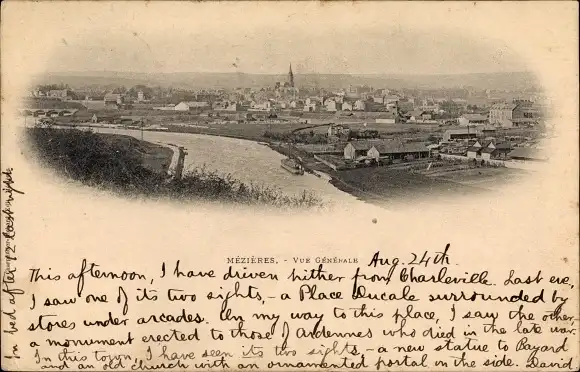 MÉZIÈRES. - VUE GÉNÉRALE
Aug. 24th.
This afternoon, I have driven hither from Charleville. Last eve,
I saw one of its two sights, - a Place Ducale surrounded by
stores under arcades. On my way to this place, I saw the other, -
a monument erected to those of Ardennes who died in the late war.
In this town, I have seen its two sights, - a new statue to Bayard
and an old church with an ornamented portal on the side. David
In bed after 12 last night